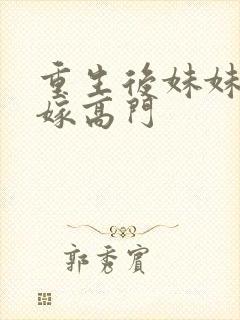 重生後妹妹
嫁高門
郭秀賓